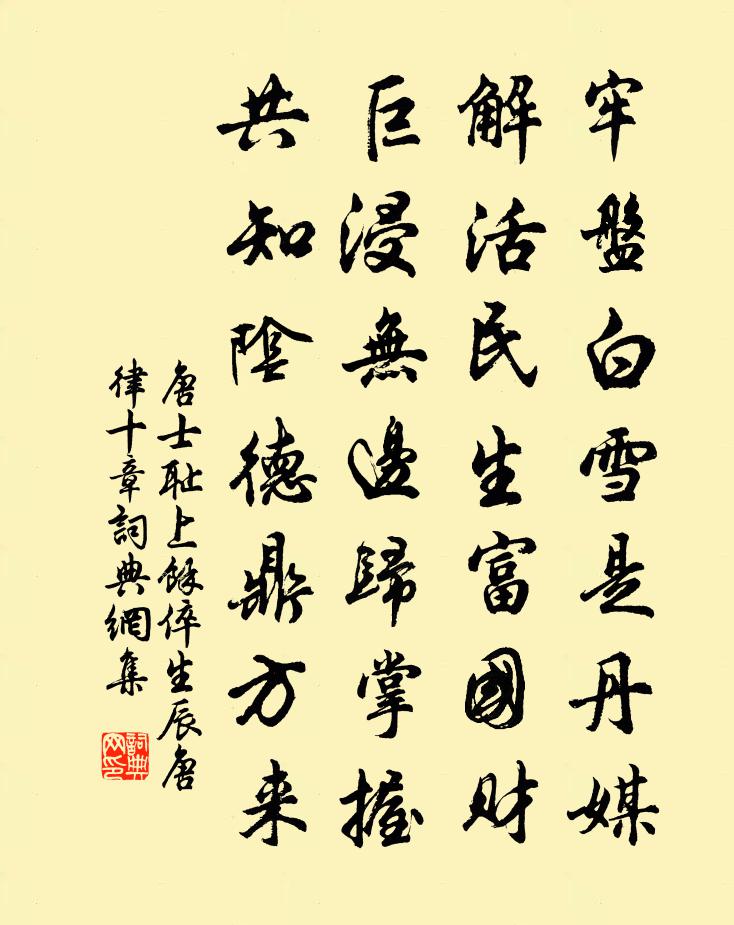 牢盤白雪是丹媒
解活民生富國財
巨浸無邊歸掌握
共知陰德鼎方来
唐士耻上餘倅生辰唐
律十章詞典網集
詞典
网印